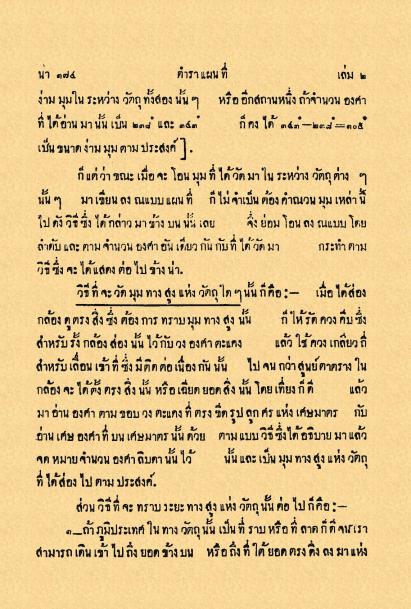 น่า ๑๗๔ ตำราแผนที่ เล่ม ๒
ง่าม มุมใน ระหว่าง วัตถุ ทั้งสอง นั้น ๆ หรือ อีกสถานหนึ่ง ถ้าจำนวน องศา
ที่ ได้อ่าน มานั้น เปน ๒๓๘° และ ๓๔๓° ก็ คง ได้ ๓๔๓°—๒๓๘°=๑๐๕°
เปน ขนาด ง่าม มุม ตาม ประสงค์ ].
ก็ แต่ ว่า ขณะ เมื่อ จะ โอน มุม ที่ ได้วัด มา ใน ระหว่าง วัตถุต่าง ๆ
นั้น ๆ มา เขียน ลง ณแบบ แผน ที่ ก็ ไม่ จำเปน ต้อง คำณวน มุม เหล่า นี้
ไป ดัง วิธี ซึ่ง ได้กล่าว มา ข้าง บน นั้น เลย จึ่ง ย่อม โอน ลง ณแบบ โดย
ลำดับ และ ตาม จำนวน องศา อัน เดียว กัน กับ ที่ ได้ วัด มา กระทำ ตาม
วิธี ซึ่ง จะ ได้แสดง ต่อ ไป ข้าง น่า.
วิธี ที่ จะ วัด มุม ทาง สูง แห่ง วัตถุ ใด ๆ นั้น ก็ คือ :— เมื่อ ได้ส่อง
กล้อง ดู ตรง สิ่ง ซึ่ง ต้อง การ ทราบ มุม ทาง สูง นั้น ก็ ให้ รัด ควง คีบ ซึ่ง
สำหรับ รั้ง กล้อง ส่อง นั้น ไว้ กับ วง องศา ตะแคง แล้ว ใช้ ควง เกลียว ถี่
สำหรับ เลื่อน เข้า ที่ ซึ่ง มี ติด ต่อ เนื่อง กัน นั้น ไป จน กว่า สูนย์ ตาตราง ใน
กล้อง จะ ได้ ตั้ง ตรง สิ่ง นั้น หรือ เฉียด ยอด สิ่ง นั้น โดย เที่ยง ก็ ดี แล้ว
มา อ่าน องศา ตาม ขอบ วง ตะแคง ที่ ตรง ขีด รูป ลูก ศร แห่ง เศษมาตร กับ
อ่าน เศษ องศา ที่ บน เศษมาตร นั้น ด้วย ตาม แบบ วิธี ซึ่ง ได้ อธิบาย มา แล้ว
จด หมาย จำนวน องศา ลิบดา นั้น ไว้ นั้น และ เปน มุม ทาง สูง แห่ง วัตถุ
ที่ ได้ส่อง ไป ตาม ประสงค์.
ส่วน วิธี ที่ จะ ทราบ ระยะ ทาง สูง แห่ง วัตถุ นั้น ต่อ ไป ก็ คือ :—
๑—ถ้า ภูมิประเทศ ใน ทาง วัตถุ นั้น เปน ที่ ราบ หรือ ที่ ลาด ก็ ดี จน เรา
สามารถ เดิน เข้า ไป ถึง ยอด ข้าง บน หรือ ถึง ที่ ใต้ ยอด ตรง ดิ่ง ลง มา แห่ง